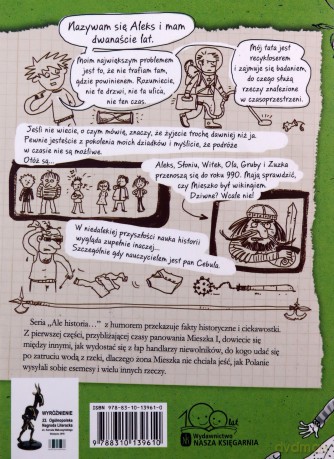 Nazywam się Aleks i mam
dwanaście lat.
Moim największym problemem
jest to, że nie trafiam tam,
gdzie powinienem. Rozumiecie,
nie te drzwi, nie ta ulica,
nie ten czas.
Mój tata jest
recykloserem
i zajmuje się badaniem,
do czego służą
rzeczy znalezione
w czasoprzestrzeni.
Jeśli nie wiecie, o czym mówię, znaczy, że żyjecie trochę dawniej niż ja.
Pewnie jesteście z pokolenia moich dziadków i myślicie, że podróże
w czasie nie są możliwe.
Otóż są...
Aleks, Słoniu, Witek, Ola, Gruby i Zuzka
przenoszą się do roku 990. Mają sprawdzić,
czy Mieszko był wikingiem.
Dziwne? Wcale nie!
W niedalekiej przyszłości nauka historii
wygląda zupełnie inaczej...
Szczególnie gdy nauczycielem jest pan Cebula.
Seria „Ale historia…” z humorem przekazuje fakty historyczne i ciekawostki.
Z pierwszej części, przybliżającej czasy panowania Mieszka I, dowiecie się
między innymi, jak wydostać się z łap handlarzy niewolników, do kogo udać się
po zatruciu wodą z rzeki, dlaczego żona Mieszka nie chciała jeść, jak Polanie
wysyłali sobie esemesy i wielu innych rzeczy.
WYRÓŻNIENIE
ISBN 978-83-10-13961-0
9 788310 139610
100 lat
Wydawnictwo
NASZA KSIĘGARNIA